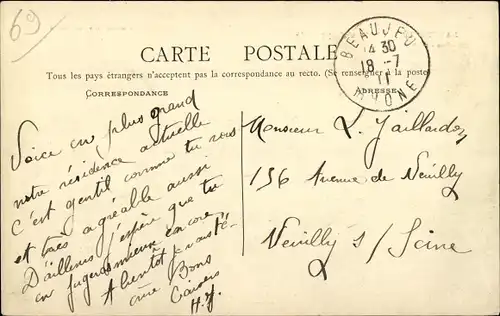 69
CARTE POSTALE
Tous les pays étrangers n'acceptent pas la correspondance au recto. (Se renseigner à la poste)
CORRESPONDANCE
ADRESSE
BEAUJEU
14 30
18 -7
11
RHONE
Voici en plus grand
notre résidence actuelle
c'est gentil comme tu vois
et très agréable aussi
D'ailleurs j'espère que tu
en jugeras mieux encore
A bientôt je vais t'é-
crire Bons
Baisers
H. J.
Monsieur L. Jaillardon
156 Avenue de Neuilly
Neuilly s/ Seine